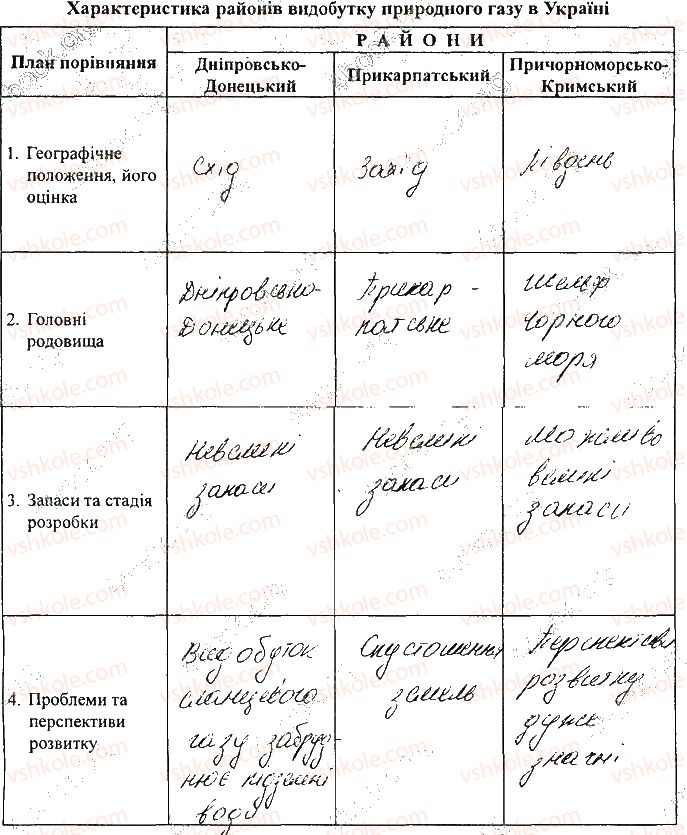 Характеристика районів видобутку природного газу в Україні
План порівняння
РАЙОНИ
Дніпровсько-
Донецький
Прикарпатський
Причорноморсько-
Кримський
1. Географічне
положення, його
оцінка
Схід
Захід
Південь
2. Головні
родовища
Дніпровсько-
Донецьке
Прикар-
патське
Шельф
Чорного
моря
3. Запаси та стадія
розробки
Невеликі
запаси
Невеликі
запаси
Можливо
великі
запаси
4. Проблеми та
перспективи
розвитку
Видобуток
сланцевого
газу забруд-
нює підземні
води
Спустошення
земель
Перспективи
розвитку
дуже
значні
vshkole.com